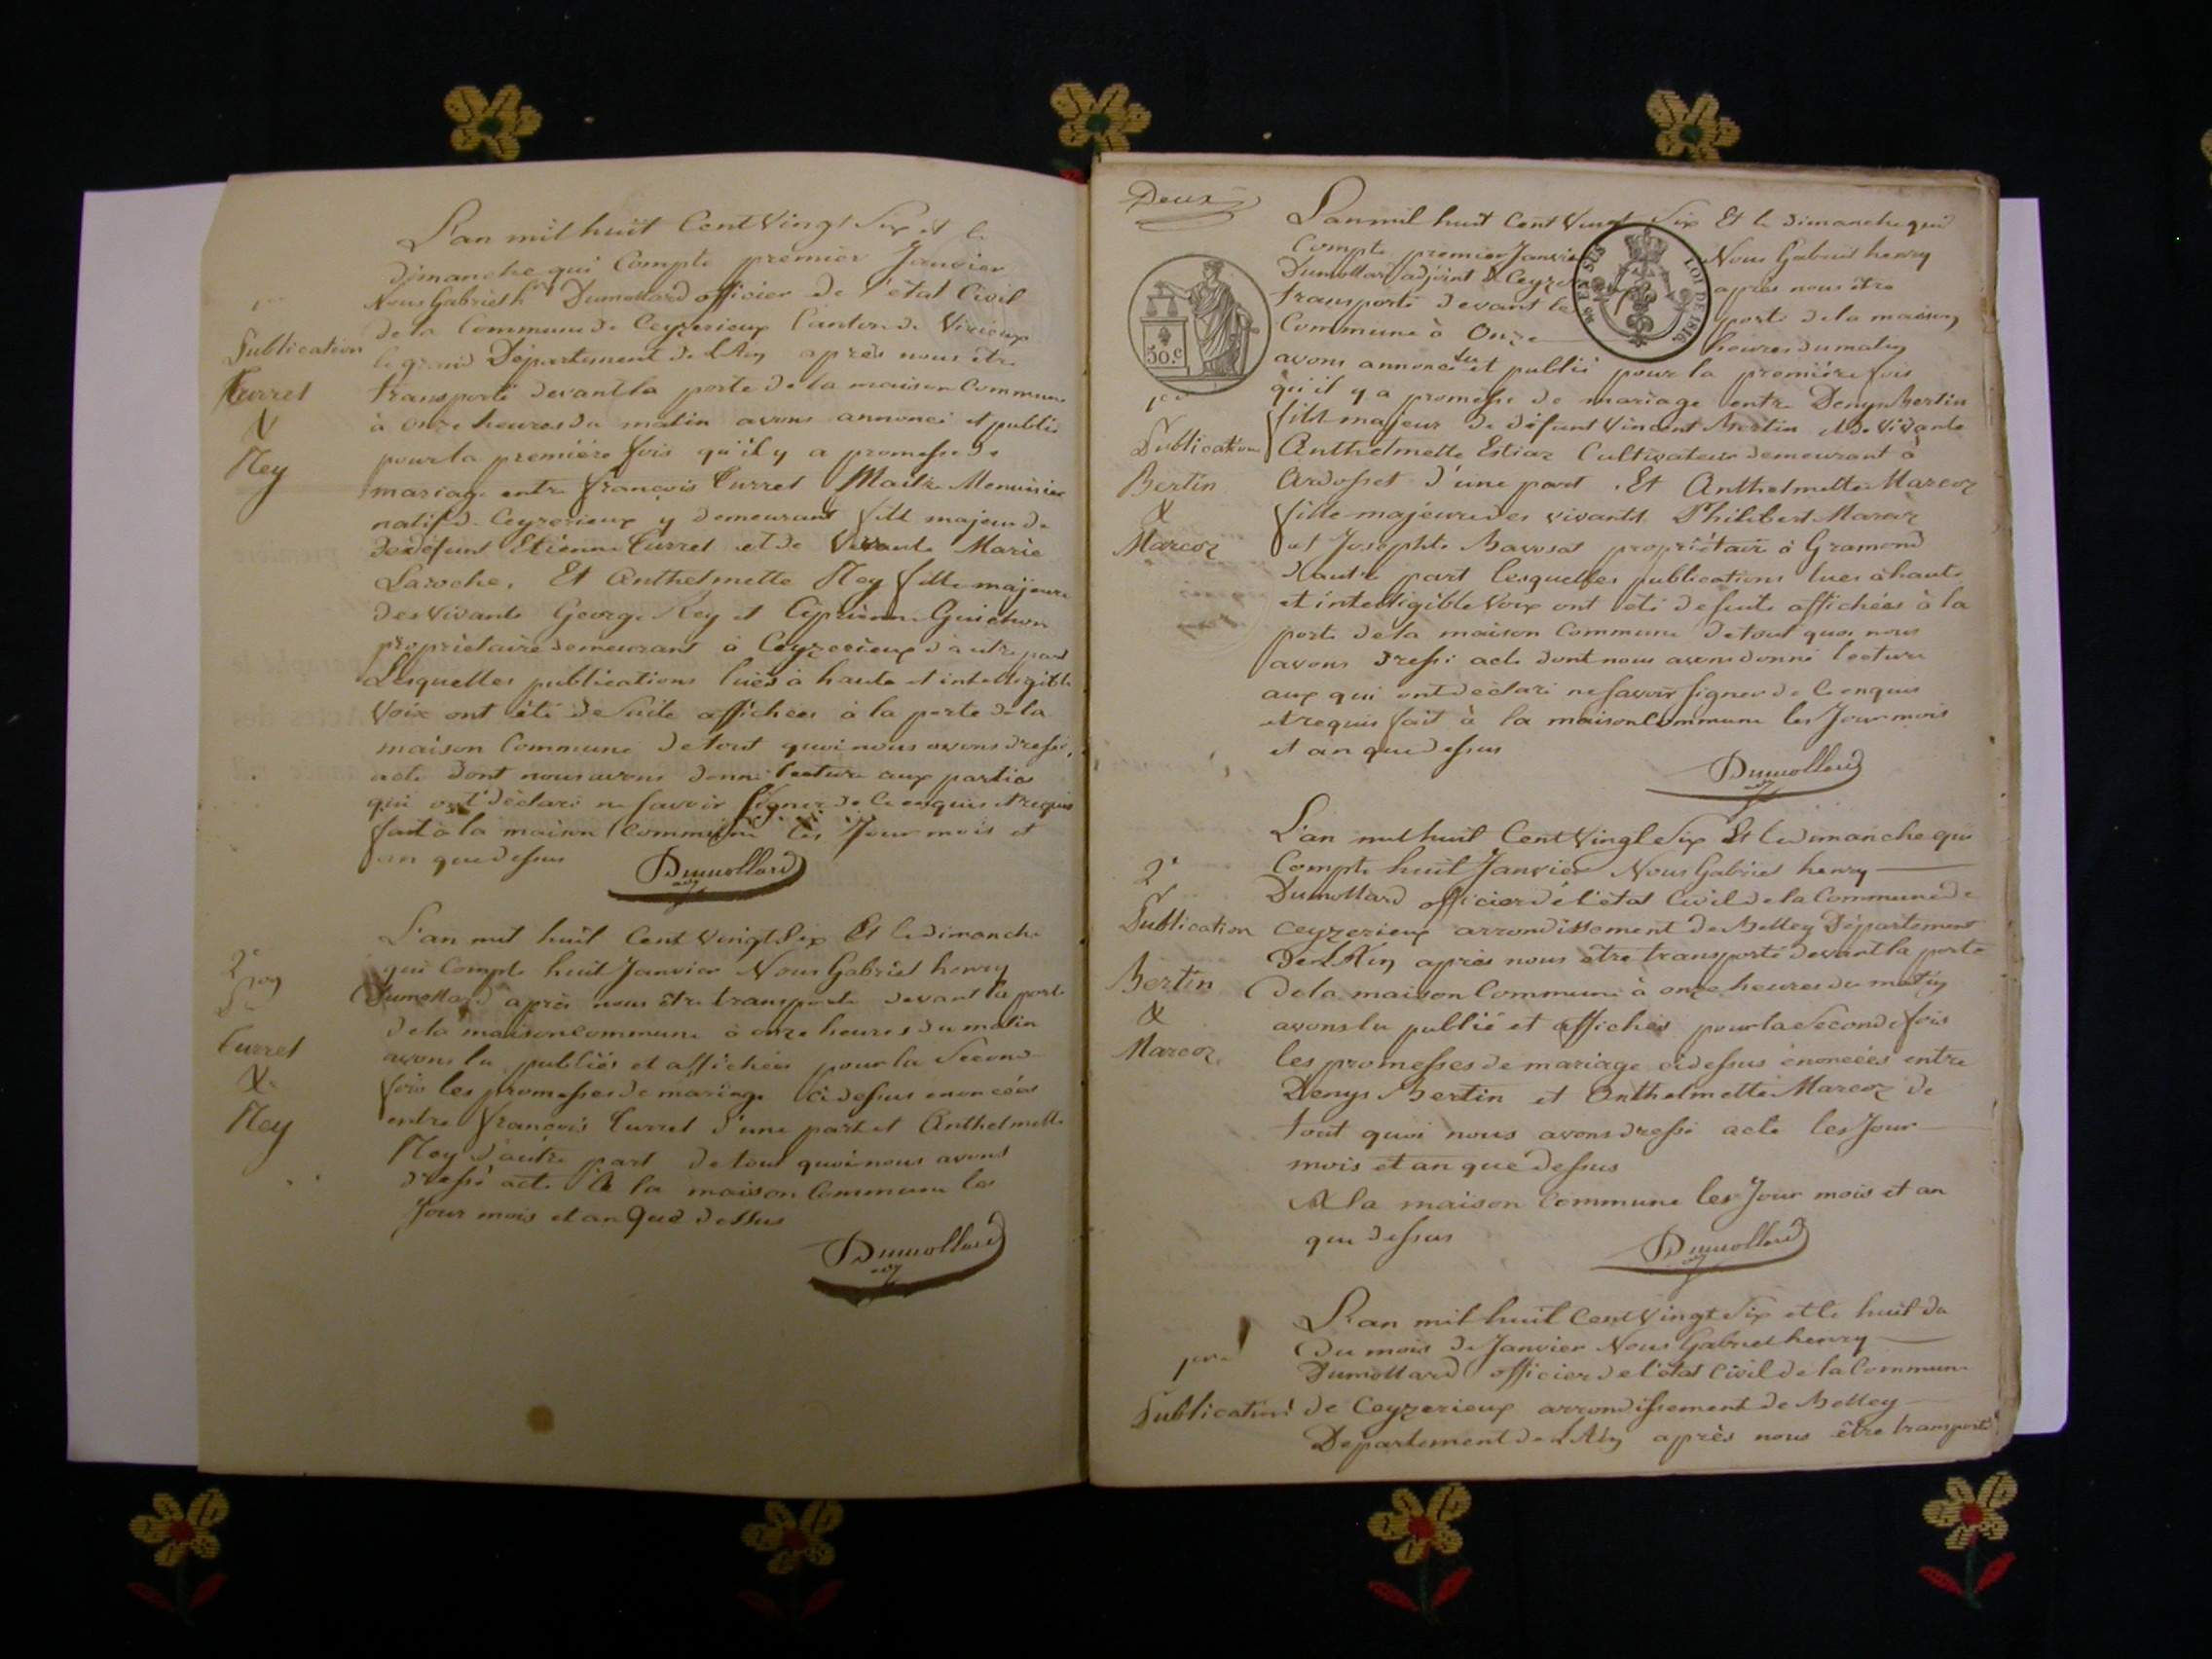 L'an mil huit Cent Vingt Six et le
dimanche qui Compte premier Janvier
Nous Gabriel hry Dumollard officier de l'état Civil
de la Commune de Ceyzerieux Canton de Virieux
le grand Département de L'Ain après nous être
transporté devant la porte de la maison Commune
à Onze heures du matin avons annoncé et publié
pour la première fois qu'il y a promesse de
mariage entre françois Curret Maitre Menuisier
natif de Ceyzerieux y demeurant fils majeur de
défunt Etienne Curret et de Vivante Marie
Laroche. Et Anthelmette Rey fille majeure
des Vivants George Rey et Ciprienne Guichon
propriétaire demeurant à Ceyzerieux d'autre part
Lesquelles publications lues à haute et intelligible
Voix ont été de Suite affichées à la porte de la
maison Commune de tout quoi nous avons dressé
acte dont nous avons donné lecture aux parties
qui ont déclaré ne savoir signer de ce enquis et requis
fait à la maison Commune les Jour mois et
an que dessus
Dumollard
adj
1ere
Publication
Curret
&
Rey
L'an mil huit Cent Vingt Six Et le dimanche
qui Compte huit Janvier Nous Gabriel henry
Dumollard après nous être transporté devant la porte
de la maison commune à onze heures du matin
avons lu publiés et affichées pour la Seconde
fois les promesses de mariage ci dessus enoncées
entre françois Curret d'une part et Anthelmette
Rey d'autre part de tout quoi nous avons
dressé acte à la maison Commune les
Jour mois et an que dessus
Dumollard
adj
2e
Curret
&
Rey
Deux
L'an mil huit Cent Vingt Six Et le dimanche qui
Compte premier Janvier Nous Gabriel henry
Dumollard adjoint à après nous être
transporté devant la porte de la maison
Commune à Onze heures du matin
avons annoncé lu et publié pour la première fois
qu'il y a promesse de mariage entre Denys Bertin
fils majeur de défunt Vincent Bertin et de vivante
Anthelmette Estiaz Cultivateur demeurant à
Ardosset d'une part. Et Anthelmette Marcoz
fille majeure des vivants Philibert Marcoz
et Josephte Bavosat propriétaire à Gramond
d'autre part lesquelles publications lues à haute
et intelligible Voix ont été de suite affichées à la
porte de la maison Commune de tout quoi nous
avons dressé acte dont nous avons donné lecture
aux qui ont déclaré ne savoir signer de ce enquis
et requis fait à la maison Commune les Jour mois
et an que dessus
Dumollard
adj
50.c
EN SUS
LOI DE 1816
1ere
Publication
Bertin
&
Marcoz
L'an mil huit Cent Vingt Six Et le dimanche qui
Compte huit Janvier Nous Gabriel henry
Dumollard officier de l'état Civil de la Commune de
Ceyzerieux arrondissement de Belley Département
De L'Ain après nous être transporté devant la porte
de la maison Commune à onze heures du matin
avons lu publié et affichés pour la Seconde fois
les promesses de mariage ci dessus énoncées entre
Denys Bertin et Anthelmette Marcoz de
tout quoi nous avons dressé acte les Jour
mois et an que dessus
A la maison Commune les Jour mois et an
que dessus
Dumollard
adj
2e
Publication
Bertin
&
Marcoz
L'an mil huit Cent Vingt Six et le huit du
Du mois de Janvier Nous Gabriel henry
Dumollard officier de l'état Civil de la Commune
de Ceyzerieux arrondissement de Belley
Departement de L'Ain après nous être transporté
1ere
Publication